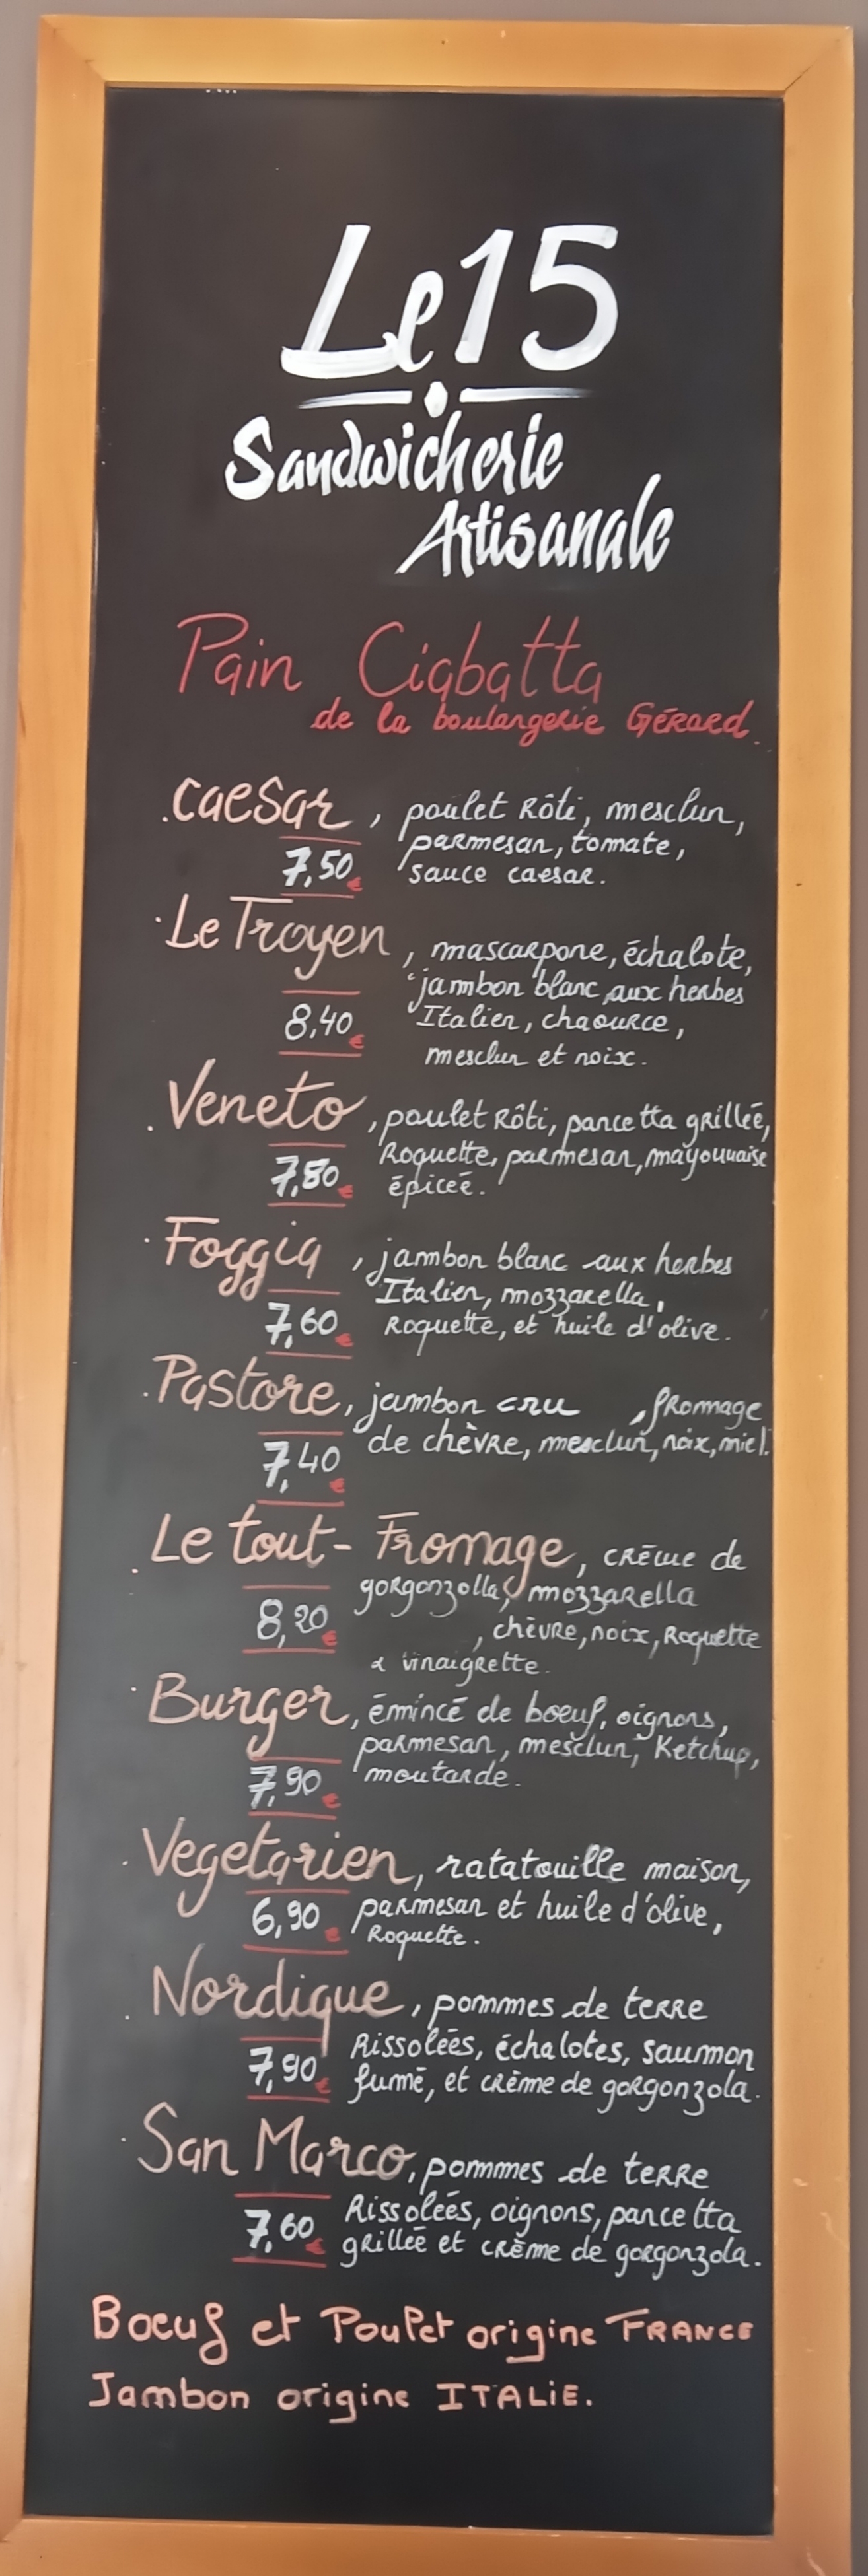 Le 15
Sandwicherie
Artisanale
Pain Ciabatta
de la boulangerie GÉRARD.
. Caesar, poulet Rôti, mesclun,
parmesan, tomate,
7,50€ sauce caesar.
· Le Troyen, mascarpone, échalote,
jambon blanc aux herbes
8,40€ Italien, chaource,
mesclun et noix.
. Veneto, poulet Rôti, pancetta grillée,
Roquette, parmesan, mayonnaise
7,80€ épicée.
· Foggia, jambon blanc aux herbes
Italien, mozzarella,
7,60€ Roquette, et huile d'olive.
. Pastore, jambon cru, fromage
de chèvre, mesclun, noix, miel.
7,40€
. Le tout-Fromage, crème de
gorgonzolla, mozzarella
8,20€ , chèvre, noix, Roquette
& vinaigrette.
· Burger, émincé de boeuf, oignons,
parmesan, mesclun, Ketchup,
7,90€ moutarde.
. Vegetarien, ratatouille maison,
6,90€ parmesan et huile d'olive,
Roquette.
. Nordique, pommes de terre
Rissolées, échalotes, saumon
7,90€ fumé, et crème de gorgonzola.
· San Marco, pommes de terre
Rissolées, oignons, pancetta
7,60€ grillée et crème de gorgonzola.
Boeuf et Poulet origine FRANCE
Jambon origine ITALiE.